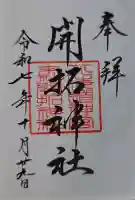 奉拝
開拓神社
令和七年十月廿九日